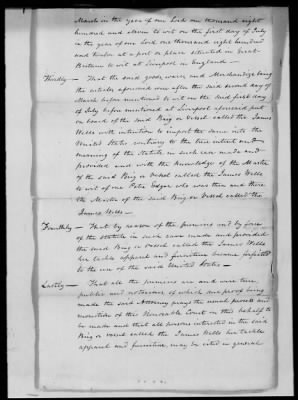 March in the year of our Lord one thousand eight
hundred and eleven to wit on the first day of July
in the year of our Lord one thousand eight hundred
and twelve at a port or place situated in Great
Britain to wit at Liverpool in England —
Thirdly — That the said goods, wares, and Merchandize being
the articles aforesaid were after the said second day of
March before mentioned to wit on the said first day
of July before mentioned at Liverpool aforesaid put
on board of the said Brig or Vessel called the James
Wells with intention to import the same into the
United States contrary to the true intent and
meaning of the Statute in such case made and
provided and with the knowledge of the Master
of the said Brig or Vessel called the James Wells
to wit of one Peter Edgar who was then and there
the Master of the said Brig or Vessel called the
James Wells —
Fourthly — That by reason of the premises and by force
of the Statute in such case made and provided
the said Brig or Vessel called the James Wells
her tackle apparel and furniture became forfeited
to the use of the said United States —
Lastly — That all the premises are and were true,
public and notorious of which due proof being
made the said Attorney prays the usual process and
monition of this Honorable Court in this behalf to
be made and that all persons interested in the said
Brig or Vessel called the James Wells her tackle
apparel and furniture, may be cited in general